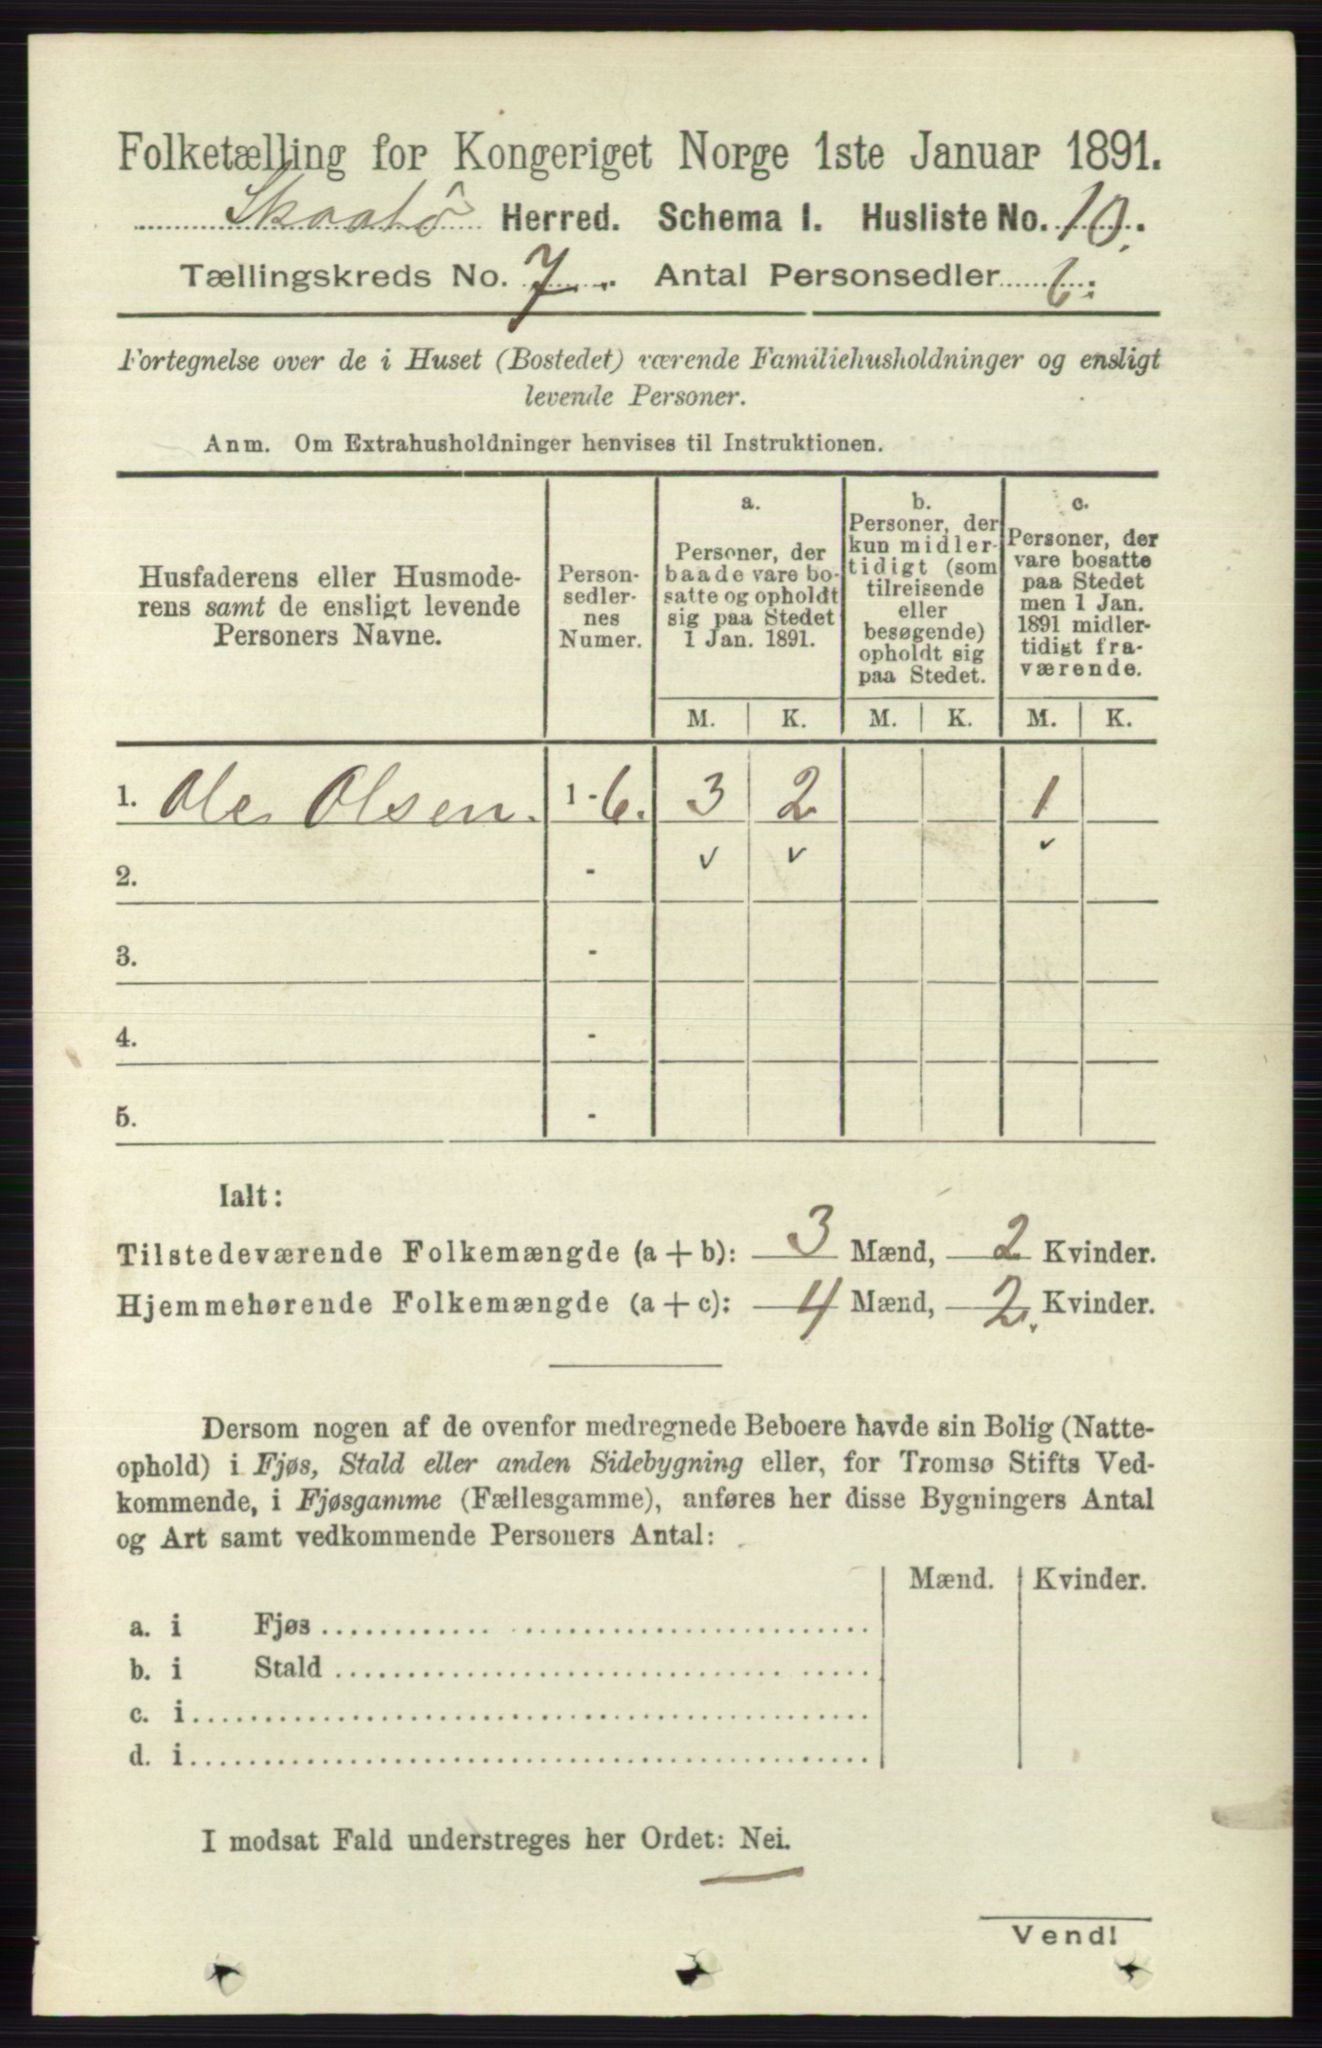 Folketælling for Kongeriget Norge 1ste Januar 1891.
Skaatö Herred. Schema 1. Husliste No. 10.
Tællingskreds No. 7. Antal Personsedler 6.
Fortegnelse over de i Huset (Bostedet) værende Familiehusholdninger og ensligt
levende Personer.
Anm. Om Extrahusholdninger henvises til Instruktionen.
Husfaderens eller Husmode-
rens samt de ensligt levende
Personers Navne.
Person-
sedler-
nes
Numer.
a.
Personer, der
baade vare bo-
satte og opholdt
sig paa Stedet
1 Jan. 1891.
b.
Personer, der
kun midler-
tidigt (som
tilreisende
eller
besøgende)
opholdt sig
paa Stedet.
c.
Personer, der
vare bosatte
paa Stedet
men 1 Jan.
1891 midler-
tidigt fra-
værende.
M. K. M. K. M. K.
1. Ole Olsen. 1-6. 3 2 1
2. - ✓ ✓ ✓
3. -
4. -
5. -
Ialt:
Tilstedeværende Folkemængde (a + b): 3 Mænd, 2 Kvinder.
Hjemmehørende Folkemængde (a + c): 4 Mænd, 2. Kvinder.
Dersom nogen af de ovenfor medregnede Beboere havde sin Bolig (Natte-
ophold) i Fjøs, Stald eller anden Sidebygning eller, for Tromsø Stifts Ved-
kommende, i Fjøsgamme (Fællesgamme), anføres her disse Bygningers Antal
og Art samt vedkommende Personers Antal:
Mænd. Kvinder.
a. i Fjøs
b. i Stald
c. i
d. i
I modsat Fald understreges her Ordet: Nei.
Vend!